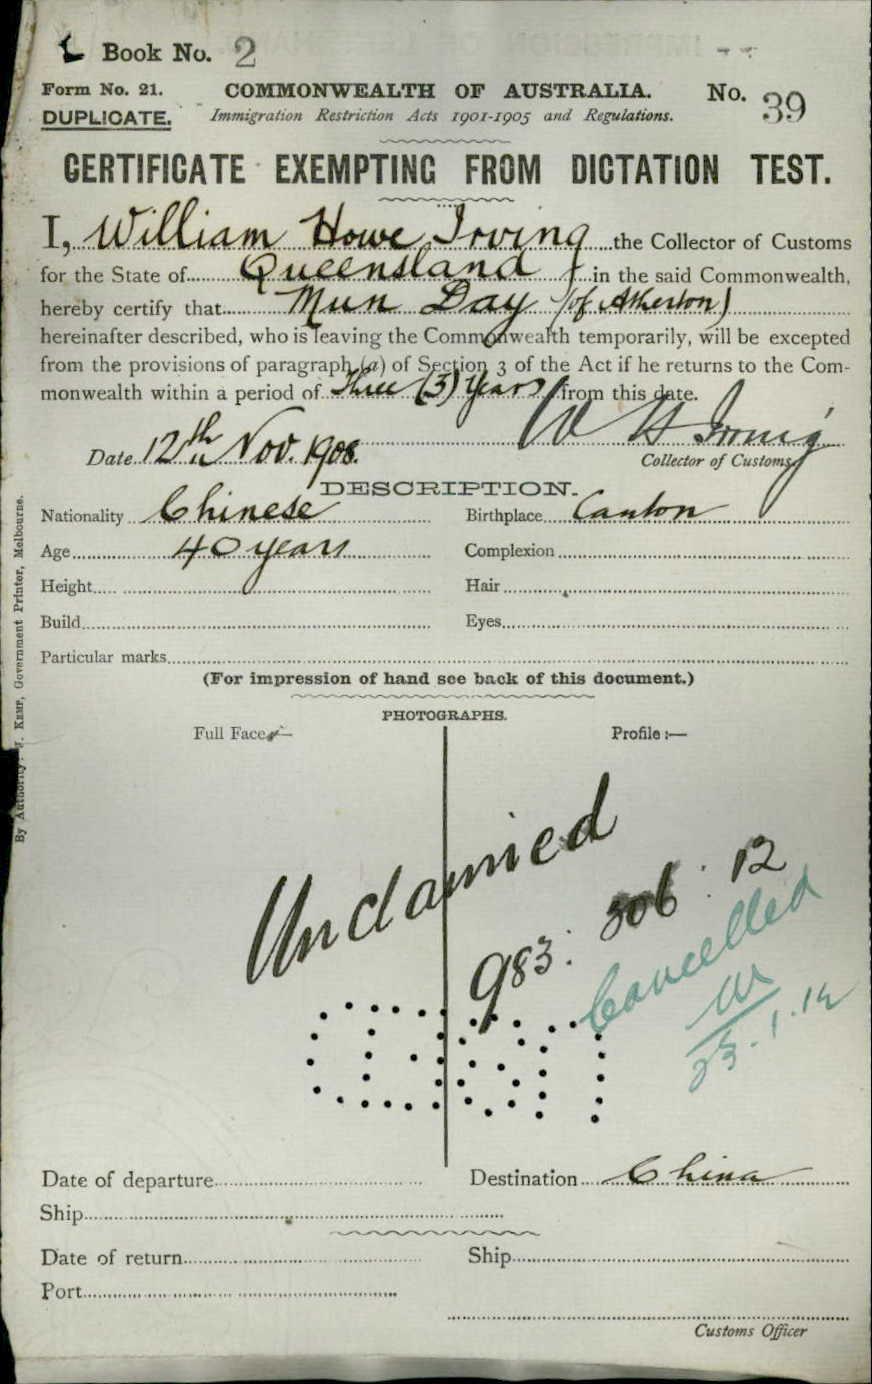 Book No. 2
Form No. 21. COMMONWEALTH OF AUSTRALIA. No. 39
DUPLICATE. Immigration Restriction Acts 1901-1905 and Regulations.
CERTIFICATE EXEMPTING FROM DICTATION TEST.
I, William Howe Irving the Collector of Customs
for the State of Queensland in the said Commonwealth,
hereby certify that Mun Day (of Atherton)
hereinafter described, who is leaving the Commonwealth temporarily, will be excepted
from the provisions of paragraph (a) of Section 3 of the Act if he returns to the Com-
monwealth within a period of three (3) years from this date.
W H Irving
Date 12th Nov. 1908. Collector of Customs
DESCRIPTION.
Nationality Chinese Birthplace Canton
Age 40 years Complexion
Height Hair
Build Eyes
Particular marks
(For impression of hand see back of this document.)
PHOTOGRAPHS.
Full Face:— Profile :—
Unclaimed
983: 306: 12
Cancelled
23.1.14
Date of departure Destination China
Ship
Date of return Ship
Port
Customs Officer
By Authority: J. KEMP, Government Printer, Melbourne.